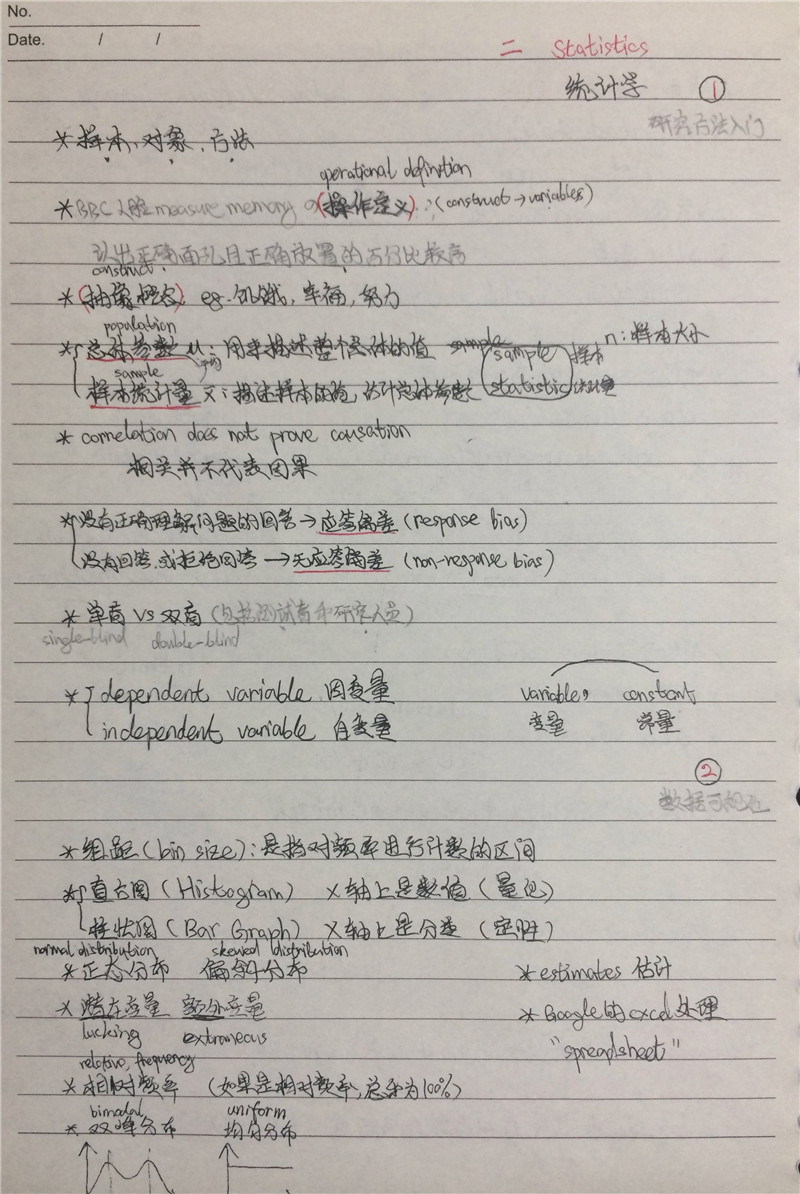 No.
Date. / /
二 Statistics
统计学 ①
研究方法入门
* 样本、对象、方法
operational definition
* BBC 人脸 measure memory (操作定义):(construct → variables)
认出正确面孔且正确放置的百分比较高
construct
* (抽象概念) eg. 饥饿, 幸福, 努力
population
* 总体参数 μ: 用来描述整个总体的值 sample statistic 样本统计量 n: 样本大小
平均
sample
样本统计量 x̄: 描述样本的值, 估计总体参数
* correlation does not prove causation
相关并不代表因果
* 没有正确理解问题的回答 → 应答偏差 (response bias)
没有回答或拒绝回答 → 无应答偏差 (non-response bias)
* 单盲 VS 双盲 (包括测试者和研究人员)
single-blind double-blind
* dependent variable 因变量 variable, constant
independent variable 自变量 变量 常量
②
数据可视化
* 组距 (bin size): 是指对频率进行计数的区间
* 直方图 (Histogram) X轴上是数值 (量化)
柱状图 (Bar Graph) X轴上是分类 (定性)
normal distribution skewed distribution
* 正态分布 偏斜分布 * estimates 估计
* 潜在变量 额外变量 * Google的excel处理
lucking extraneous "spreadsheet"
relative frequency
* 相对频率 (如果是相对频率, 总和为100%)
bimodal uniform
* 双峰分布 均匀分布